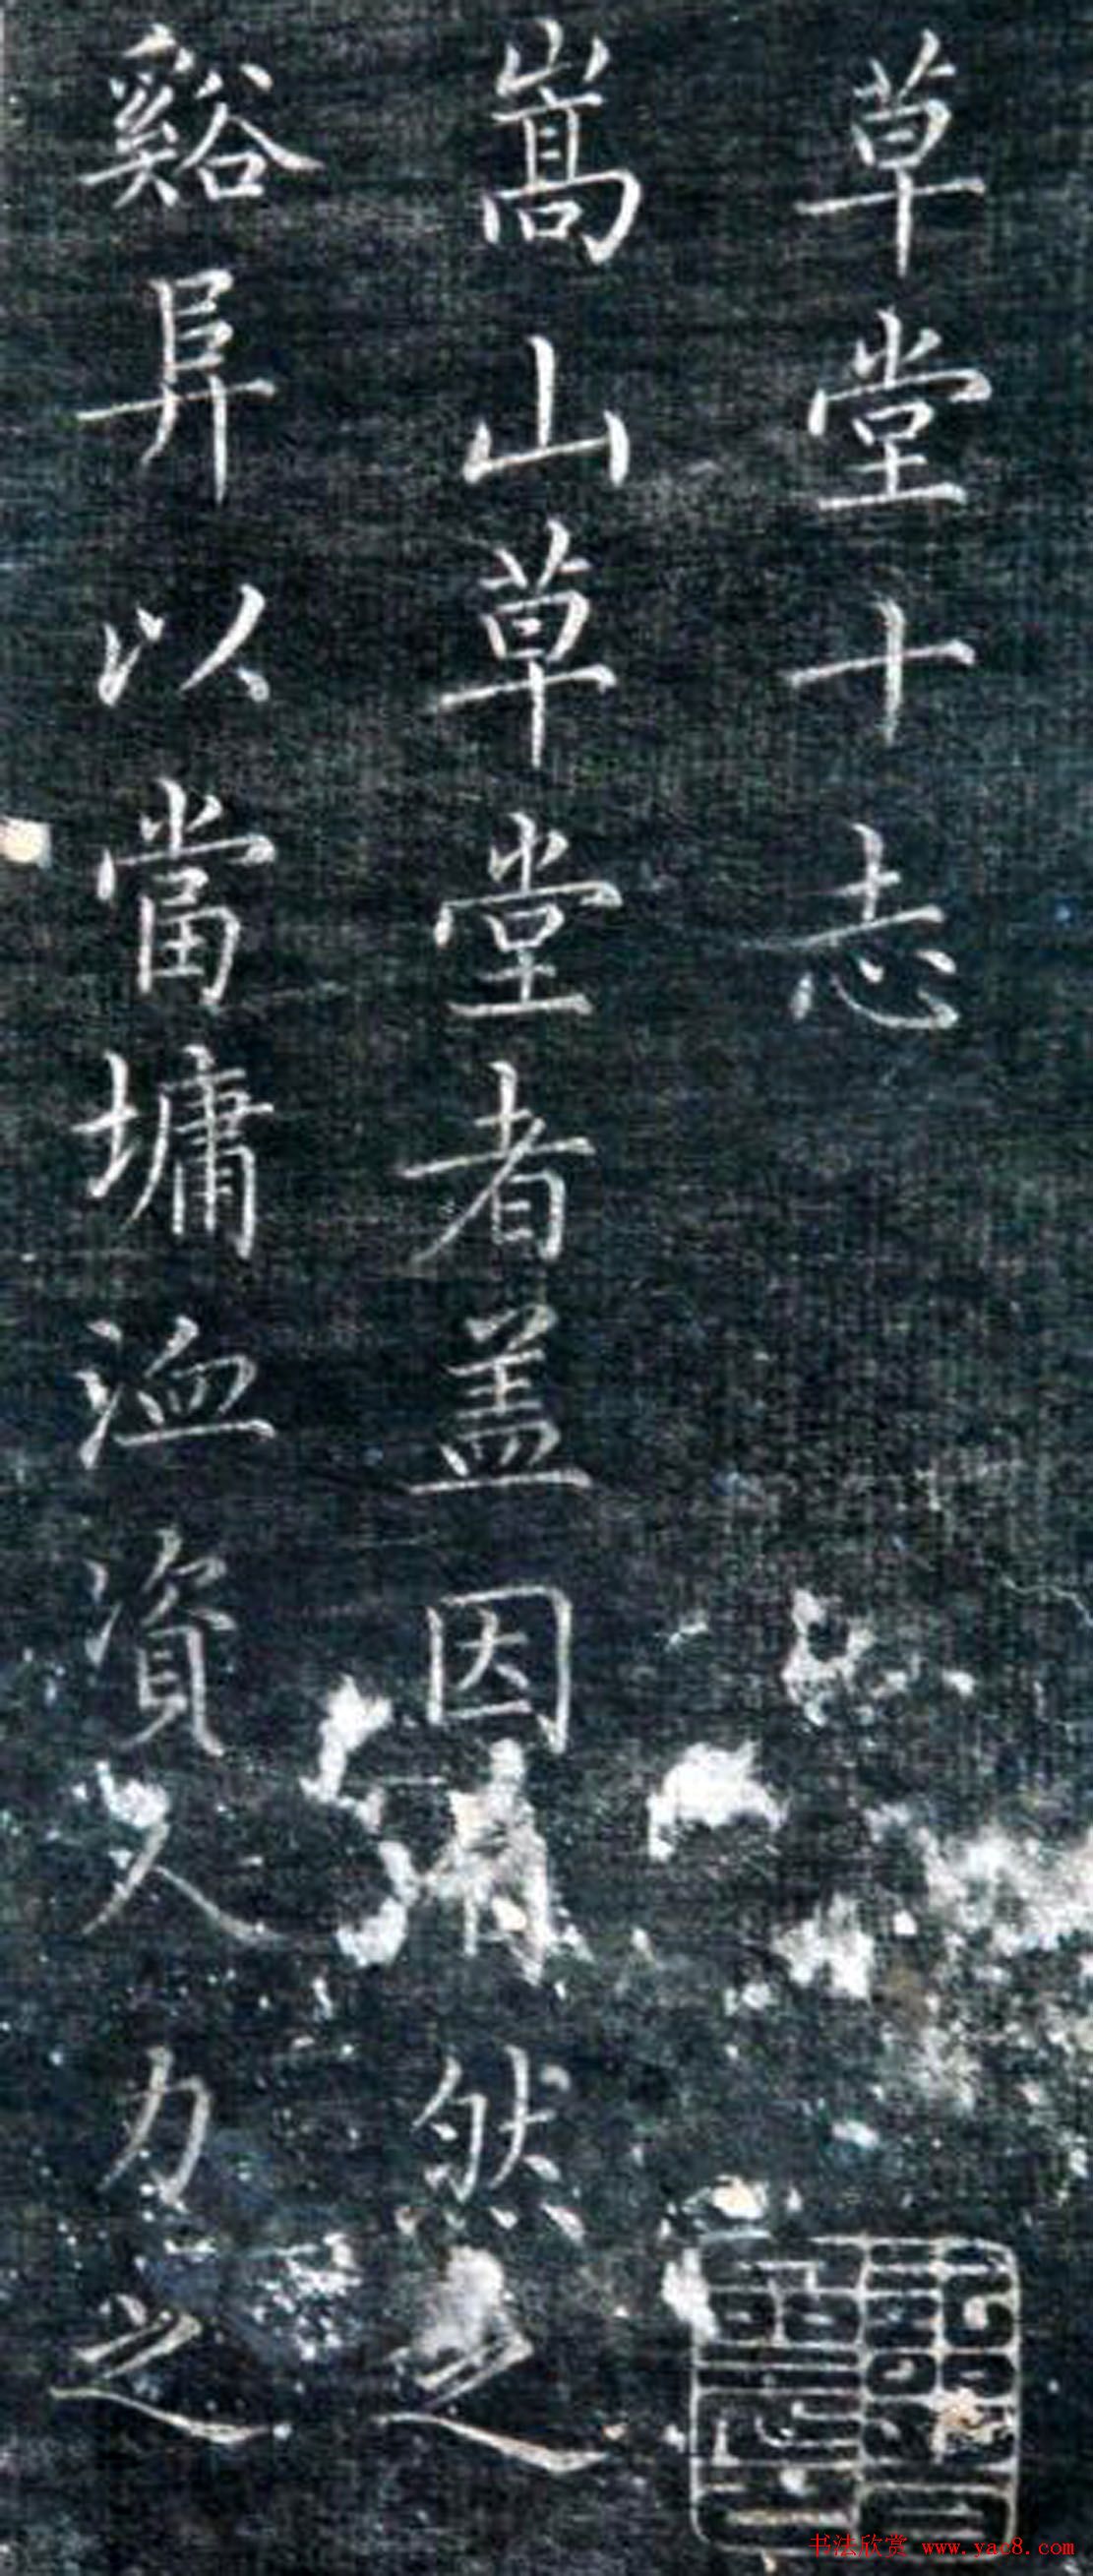 草堂十志
嵩山草堂者盖因然之
谿阜以當墉洫資人力之
书法欣赏 www.yac8.com